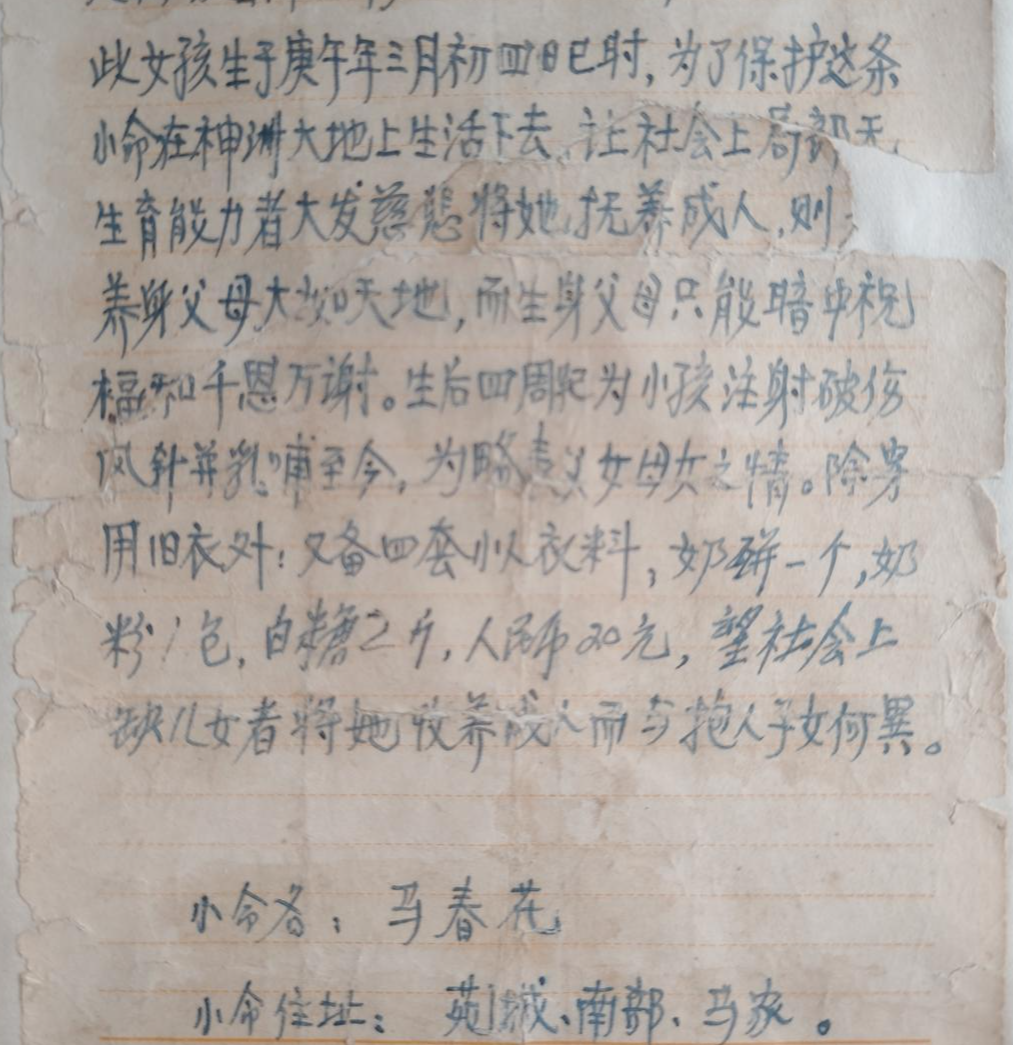 此女孩生于庚午年三月初四日巳时,为了保护这条
小命在神洲大地上生活下去,让社会上局部无
生育能力者大发慈悲将她抚养成人,则
养身父母大如天地,而生身父母只能暗中祝
福和千恩万谢。生后四周配为小孩注射破伤
风针并乳哺至今,为略表父女母女之情。除穿
用旧衣外:又备四套小人衣料,奶瓶一个,奶
粉1包,白糖2斤,人民币20元,望社会上
缺儿女者将她收养成人而与抱人子女何異。
小命名:马春花
小命住址:苑城、南部、马家。